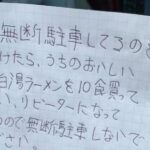 無断駐車してるのを
けたら、うちのおいしい
台湯ラーメンを10食買って
い、リピーターになって
ので無断駐車しないで
さい。